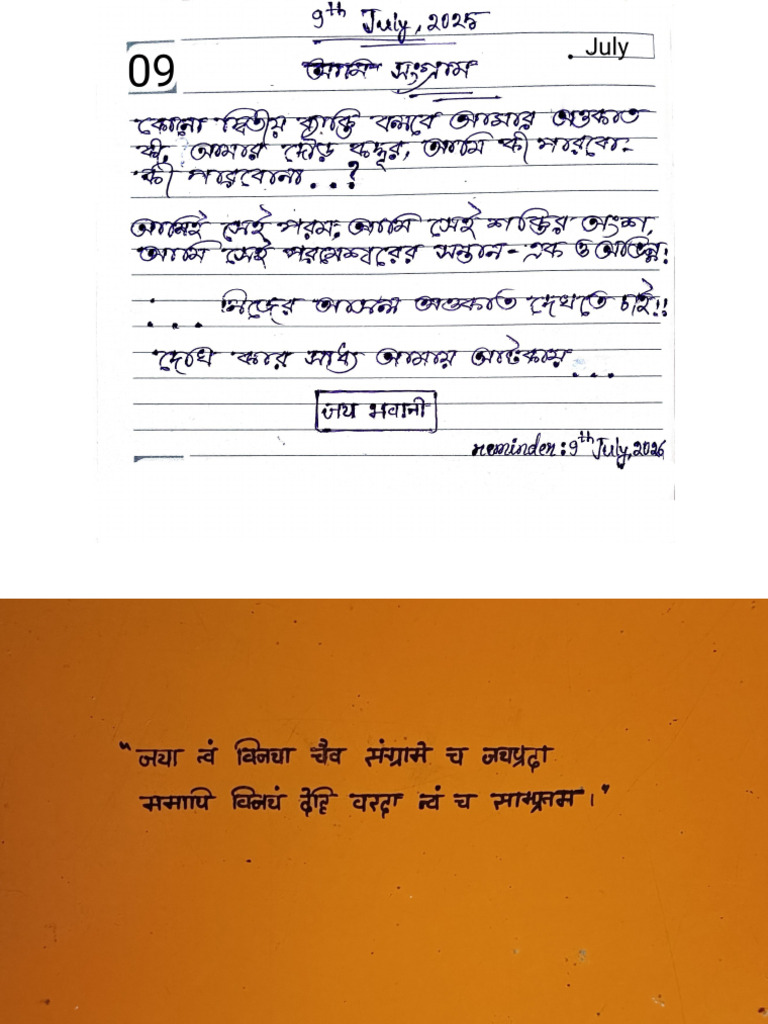 9th July, 2025
09
July
আমি সংগ্রাম
কোনো দ্বিতীয় ব্যক্তি বলবে আমার অওকাত
কী, আমার দৌড় কদ্দুর, আমি কী পারবো-
কী পারবোনা...?
আমিই সেই পরম, আমি সেই শক্তির অংশ,
আমি সেই পরমেশ্বরের সন্তান - এক ও অভিন্ন!
... নিজের আসল অওকাত দেখতে চাই!!
দেখি কার সাধ্য আমায় আটকায়...
जय भवानी
reminder: 9th July, 2026
"जया त्वं विजया चैव संग्रामे च जयप्रदा
ममापि विजयं देहि वरदा त्वं च साम्प्रतम।"